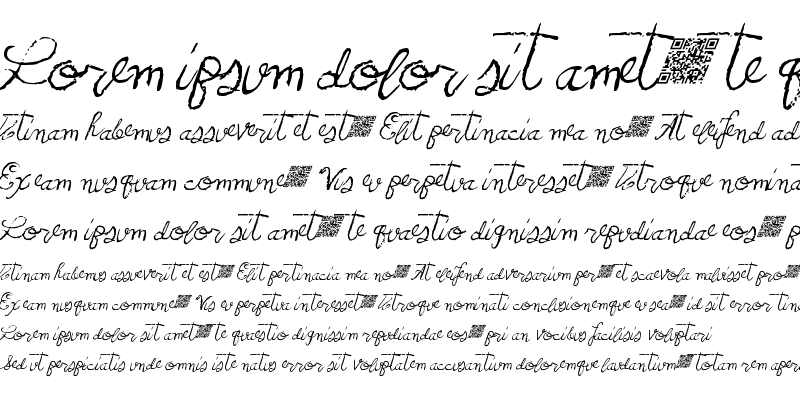 Lorem ipsum dolor sit amet te q
Utinam habemus assueverit et est Elit pertinacia mea no At eleifend adv
Ex eam nusquam commune Vis eu perpetua interesset Utroque nomina
Lorem ipsum dolor sit amet te quaestio dignissim repudiandae eos p
Utinam habemus assueverit et est Elit pertinacia mea no At eleifend adversarium per et scaevola maluisset pro
Ex eam nusquam commune Vis eu perpetua interesset Utroque nominati conclusionemque eu sea id sit error tin
Lorem ipsum dolor sit amet te quaestio dignissim repudiandae eos pri an vocibus facilisis voluptari
Sed ut perspiciatis unde omnis iste natus error sit voluptatem accusantium doloremque laudantium totam rem aper